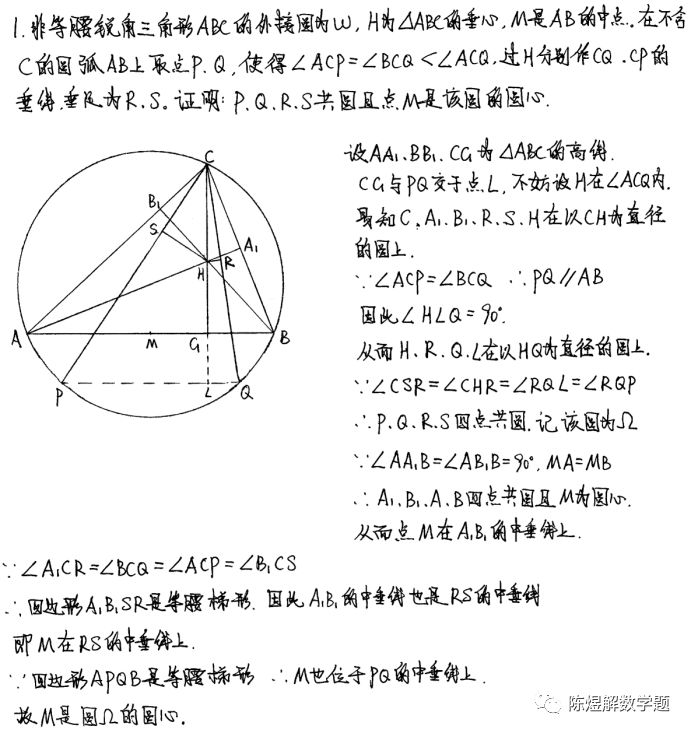 1. 非等腰锐角三角形ABC的外接圆为ω, H为△ABC的垂心, M是AB的中点. 在不含
C的圆弧AB上取点P、Q, 使得∠ACP=∠BCQ<∠ACQ. 过H分别作CQ、CP的
垂线, 垂足为R、S. 证明: P、Q、R、S共圆且点M是该圆的圆心.
设AA₁、BB₁、CG为△ABC的高线.
CG与PQ交于点L, 不妨设H在∠ACQ内.
易知C、A₁、B₁、R、S、H在以CH为直径
的圆上.
∵∠ACP=∠BCQ ∴PQ∥AB
因此∠HLQ=90°.
从而H、R、Q、L在以HQ为直径的圆上.
∵∠CSR=∠CHR=∠RQL=∠RQP
∴P、Q、R、S四点共圆. 记该圆为Ω
∵∠AA₁B=∠AB₁B=90°, MA=MB
∴A₁、B₁、A、B四点共圆且M为圆心.
从而点M在A₁B₁的中垂线上.
C
B₁
S
A₁
R
H
A
M
G
B
P
L
Q
∵∠A₁CR=∠BCQ=∠ACP=∠B₁CS
∴四边形A₁B₁SR是等腰梯形. 因此A₁B₁的中垂线也是RS的中垂线
即M在RS的中垂线上.
∵四边形APQB是等腰梯形 ∴M也位于PQ的中垂线上.
故M是圆Ω的圆心.
陈煜解数学题